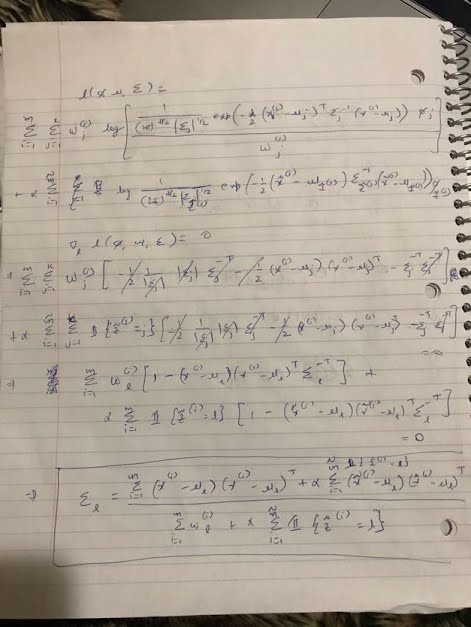 l(φ, μ, Σ) =
Σ_{i=1}^{m} Σ_{j=1}^{k} ω_j^{(i)} log [ \frac{ \frac{1}{(2π)^{n/2} |Σ_j|^{1/2}} exp(-1/2 (x^{(i)} - μ_j)^T Σ_j^{-1} (x^{(i)} - μ_j)) φ_j }{ ω_j^{(i)} } ]
+ α Σ_{i=1}^{m̃} log \frac{1}{(2π)^{n/2} |Σ_{z̃^{(i)}}|^{1/2}} exp(-1/2 (x̃^{(i)} - μ_{z̃^{(i)}}) Σ_{z̃^{(i)}}^{-1} (x̃^{(i)} - μ_{z̃^{(i)}})) φ_{z̃^{(i)}}
∇_l l(φ, μ, Σ) = 0
= Σ_{i=1}^{m} Σ_{j=1}^{k} ω_j^{(i)} [ -1/2 \frac{1}{|Σ_j|} |Σ_j| Σ_j^{-T} - 1/2 (x^{(i)} - μ_j) (x^{(i)} - μ_j)^T - Σ_j^{-T} Σ_j^{-T} ]
+ α Σ_{i=1}^{m̃} 1{z̃^{(i)} = j} [ -1/2 \frac{1}{|Σ_j|} |Σ_j| Σ_j^{-T} - 1/2 (x̃^{(i)} - μ_j) (x̃^{(i)} - μ_j)^T - Σ_j^{-T} Σ_j^{-T} ]
= 0
= Σ_{i=1}^{m} ω_l^{(i)} [ 1 - (x^{(i)} - μ_l) (x^{(i)} - μ_l)^T Σ_l^{-T} ] +
α Σ_{i=1}^{m̃} 1 {z̃^{(i)} = l} [ 1 - (x̃^{(i)} - μ_l) (x̃^{(i)} - μ_l)^T Σ_l^{-T} ]
= 0
⇒ Σ_l = \frac{ Σ_{i=1}^{m} (x^{(i)} - μ_l) (x^{(i)} - μ_l)^T + α Σ_{i=1}^{m̃} 1{z̃^{(i)} = l} (x̃^{(i)} - μ_l) (x̃^{(i)} - μ_l)^T }{ Σ_{i=1}^{m} ω_l^{(i)} + α Σ_{i=1}^{m̃} 1 {z̃^{(i)} = l} }